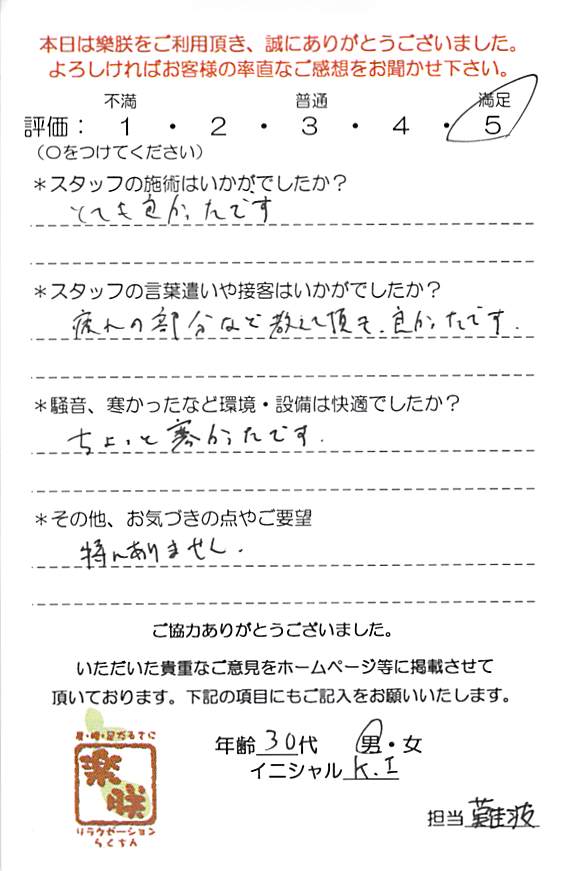 本日は樂朕をご利用頂き、誠にありがとうございました。
よろしければお客様の率直なご感想をお聞かせ下さい。
不満 普通 満足
評価： 1 ・ 2 ・ 3 ・ 4 ・ 5
（○をつけてください）
＊スタッフの施術はいかがでしたか？
とても良かったです
＊スタッフの言葉遣いや接客はいかがでしたか？
疲れの部分など教えて頂き、良かったです.
＊騒音、寒かったなど環境・設備は快適でしたか？
ちょっと寒かったです.
＊その他、お気づきの点やご要望
特にありません.
ご協力ありがとうございました。
いただいた貴重なご意見をホームページ等に掲載させて
頂いております。下記の項目にもご記入をお願いいたします。
年齢 30代 男・女
イニシャル K.I
担当 難波
樂朕
リラクゼーション
らくちん